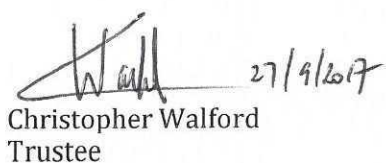 27/9/2017
Christopher Walford
Trustee